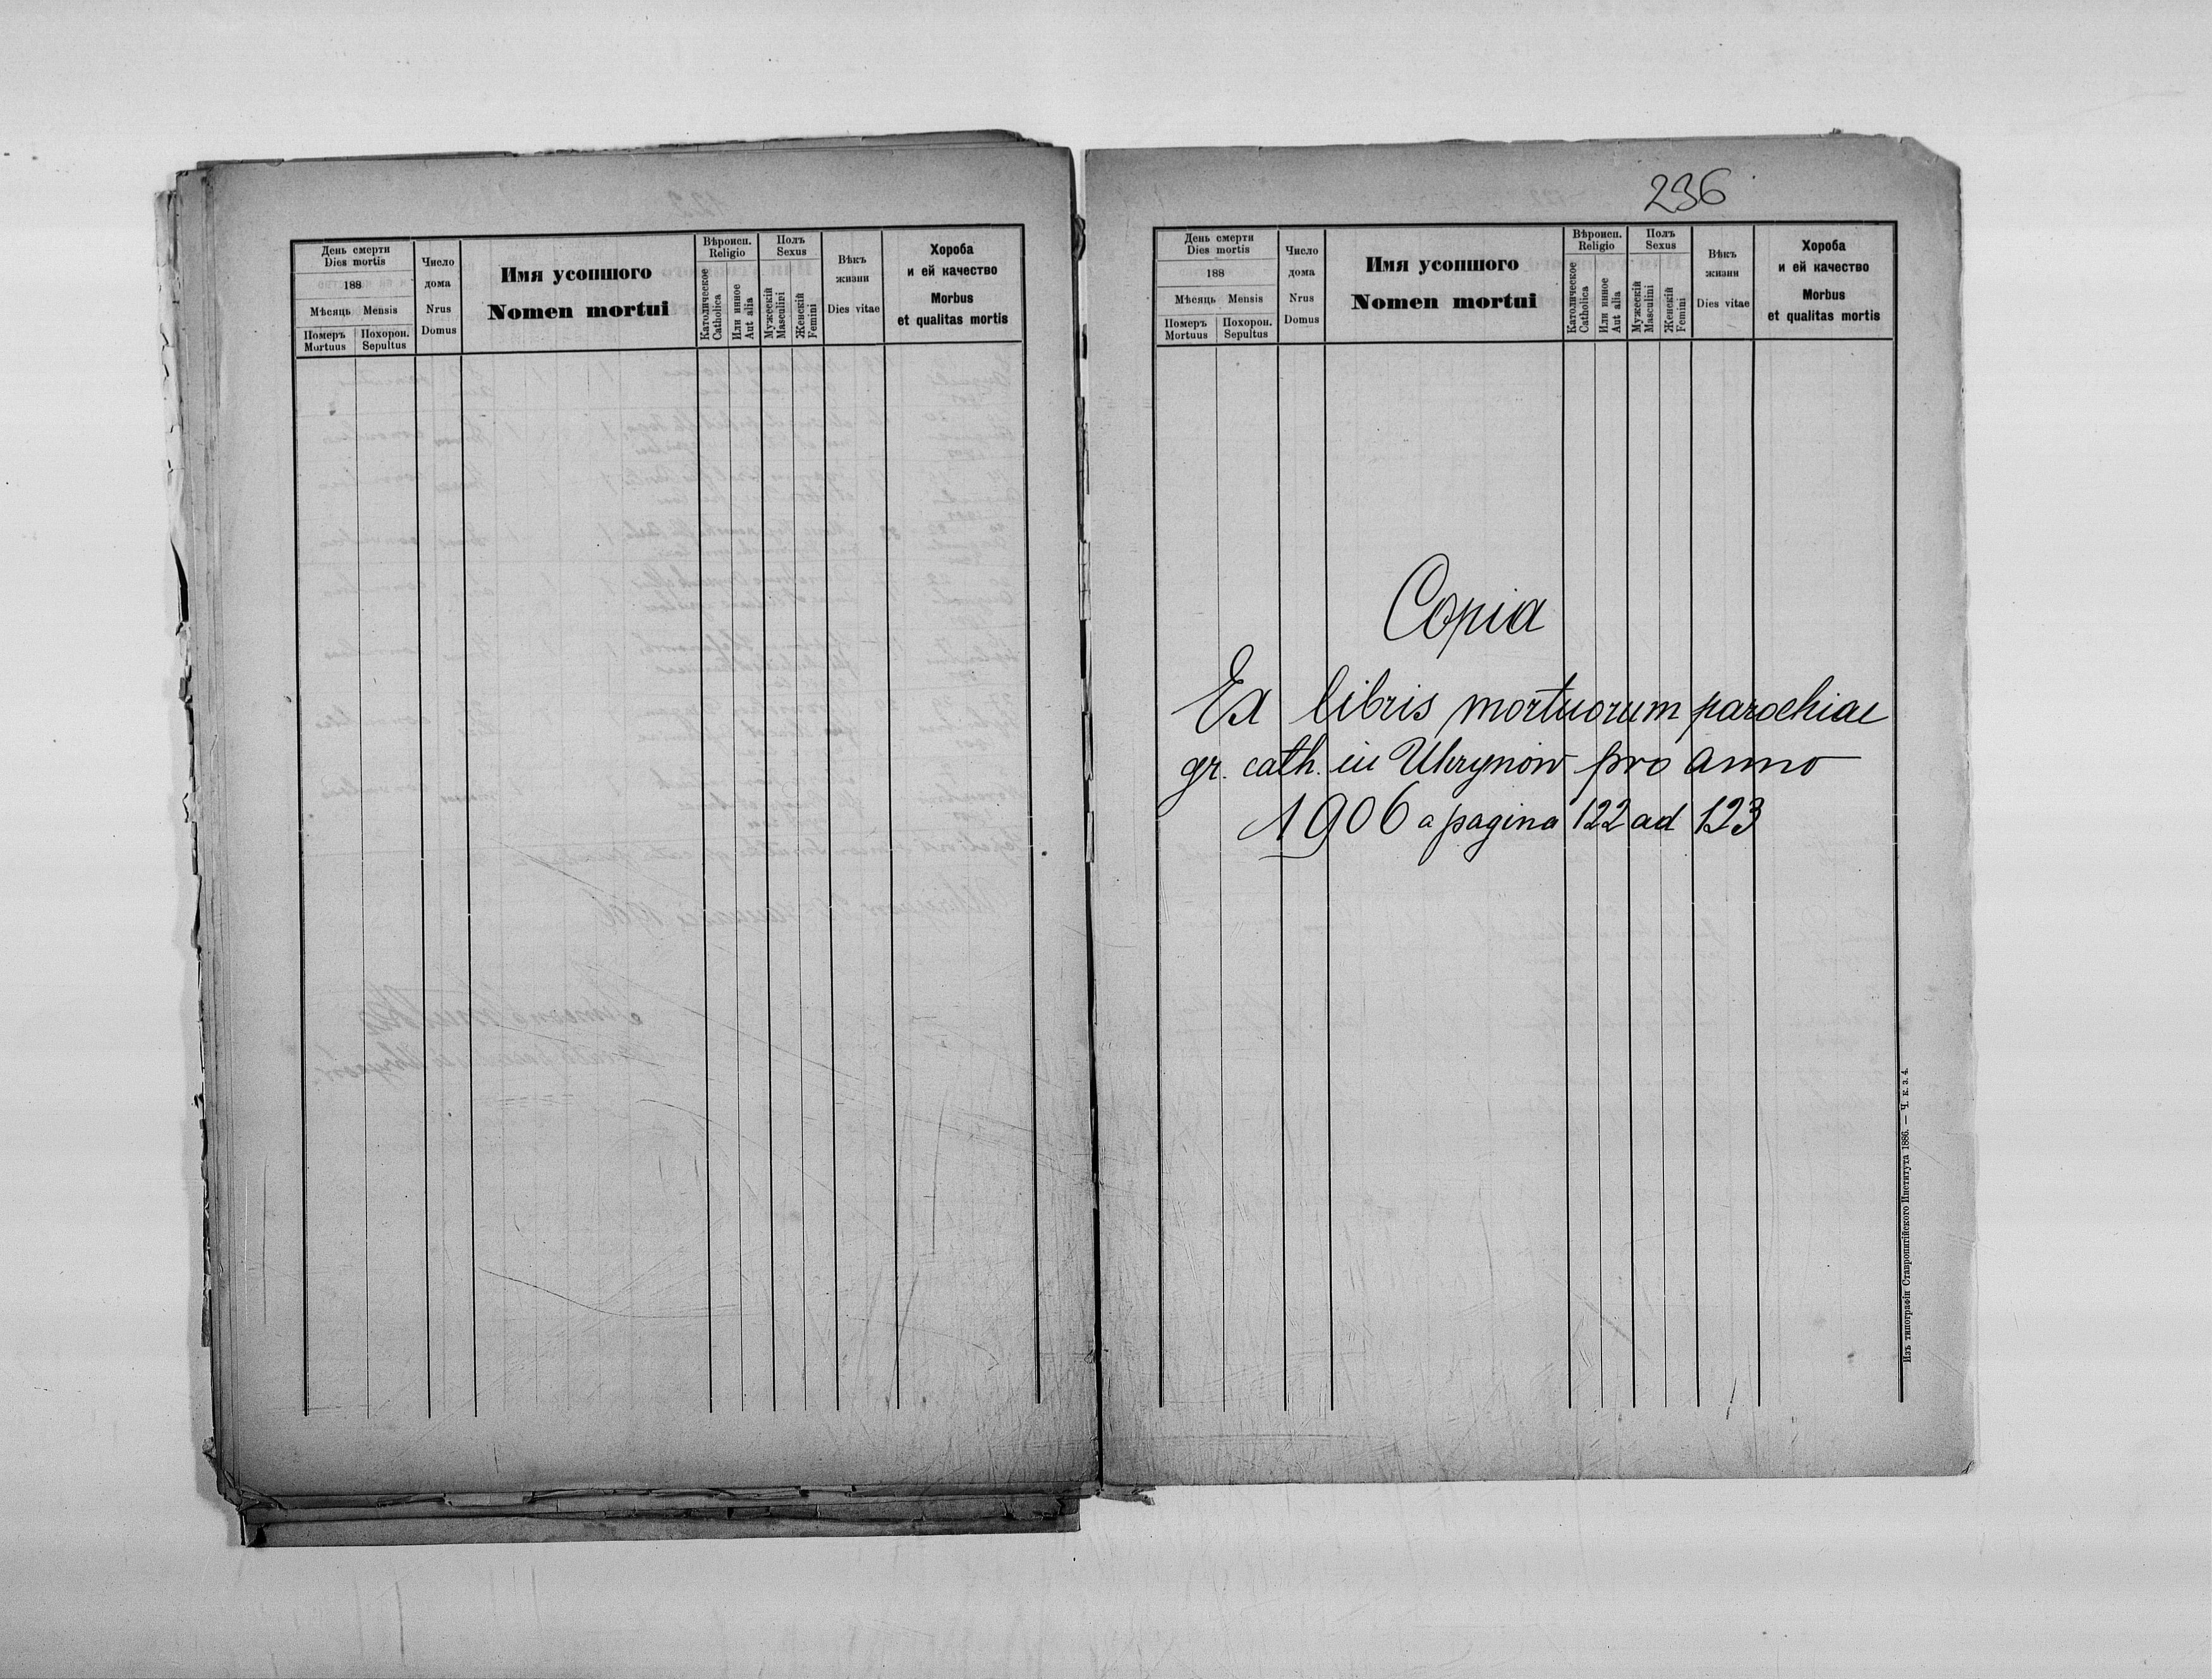 День смерти
Dies mortis
188
Мѣсяць Mensis
Померъ
Mortuus
Похорон.
Sepultus
Число
дома
Nrus
Domus
Имя усопшого
Nomen mortui
Вѣроисп.
Religio
Католическое
Catholica
Или инное
Aut alia
Полъ
Sexus
Мужескій
Masculini
Женскій
Femini
Вѣкъ
жизни
Dies vitae
Хороба
и ей качество
Morbus
et qualitas mortis
236
День смерти
Dies mortis
188
Мѣсяць Mensis
Померъ
Mortuus
Похорон.
Sepultus
Число
дома
Nrus
Domus
Имя усопшого
Nomen mortui
Вѣроисп.
Religio
Католическое
Catholica
Или инное
Aut alia
Полъ
Sexus
Мужескій
Masculini
Женскій
Femini
Вѣкъ
жизни
Dies vitae
Хороба
и ей качество
Morbus
et qualitas mortis
Copia
Ex libris mortuorum parochiae
gr. cath. in Uhrynow pro anno
1906 a pagina 122 ad 123
Изъ типографіи Ставропигійского Института 1886. — Ч. к. з. 4.